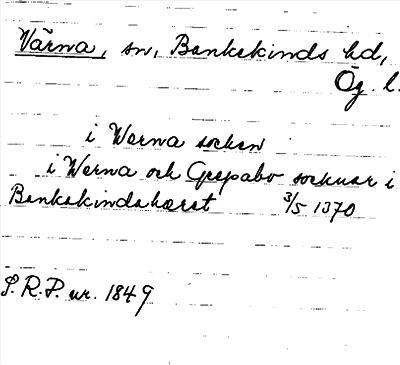 Värna, sn, Bankekinds hd,
Ög. l.
i Werna socken
i Werna och Grepabo socknar i
Bankekindshæret 3/5 1370
S.R.P. nr. 1849